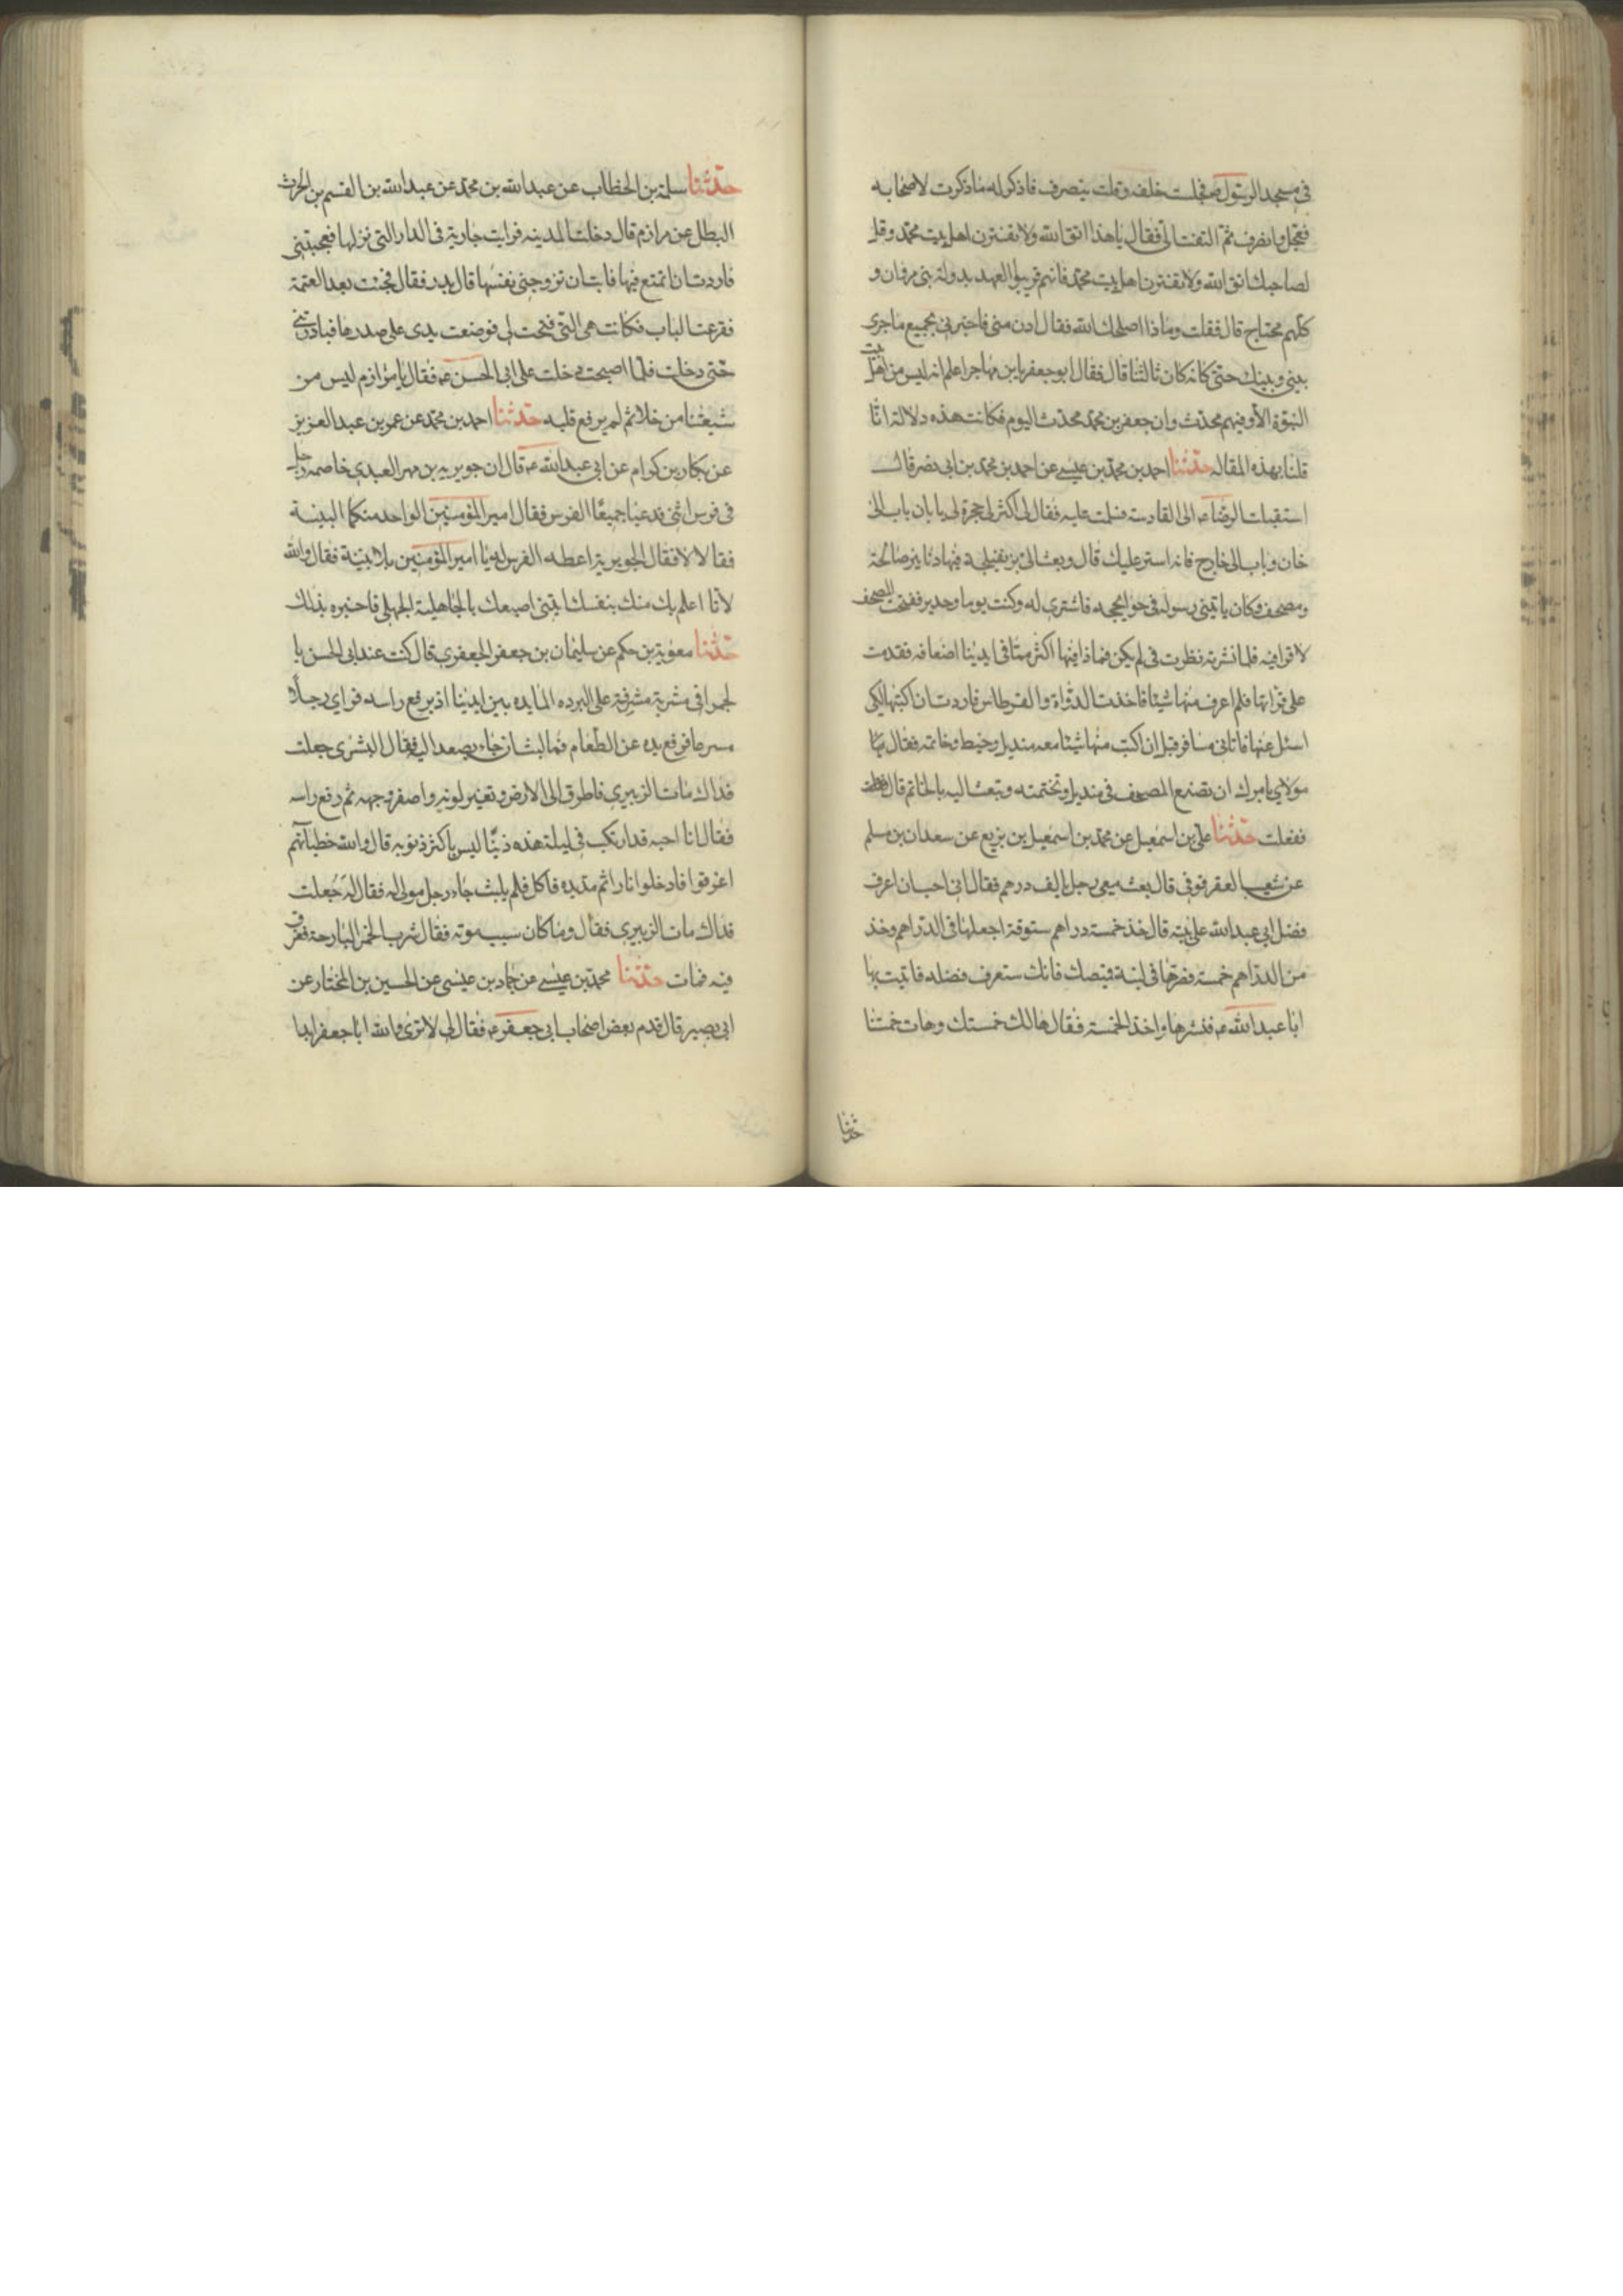 في مسجد الرسول ص فجلست خلفه وقلت ينصرف فاذكر له ما ذكرت لاصحابه
فعجل وانصرف ثم التفت الى فقال يا هذا اتق الله ولا تغترن اهل بيت محمد وقل
لصاحبك اتق الله ولا تغترن اهل بيت محمد فانهم قريبوا العهد بدولة بني مروان و
كلهم محتاج قال فقلت وماذا اصلحك الله فقال ادن منى فاخبرني بجميع ما جرى
بيني وبينك حتى كانه كان ثالثنا قال فقال ابو جعفر يابن مهاجر اعلم انه ليس من اهل بيت
النبوة الا وفيهم محدث وان جعفر بن محمد محدث اليوم فكانت هذه دلالة انا
قلنا بهذه المقاله حدثنا احمد بن محمد بن عيسى عن احمد بن محمد بن ابى نصر قال
استقبلت الرضا ع الى القادسة فسلمت عليه فقال لى اكثر لى حجرة لى بابان باب الى
خان وباب الى خارج فانه استر عليك قال وبعث الى بزنفيلجة فيها دنانير صالحة
ومصحف وكان ياتينى رسوله فى حوايجه فاشترى له وكنت يوما وحدى ففتحت المصحف
لاقرا فيه فلما نشرته نظرت فى لم يكن فماذا فيها اكثر مما فى ايدينا اضعافه فقدمت
على قراتها فلم اعرف منها شيئا فاخذت الدواة والقرطاس فاردت ان اكتبها لكى
اسئل عنها فاتانى مسافر قبل ان اكتب منها شيئا معه منديل وخيط وخاتمه فقال
مولاى يامرك ان تضع المصحف فى منديل وتختمه وتبعث اليه بالخاتم قال
ففعلت حدثنا على بن اسمعيل عن محمد بن اسمعيل بن بزيع عن سعدان بن مسلم
عن شعيب العقرقوفى قال بعث معى رجل بالف درهم فقال انى احب ان اعرف
فضل ابى عبد الله على بيته قال خذ خمسة دراهم ستوقة اجعلها فى الدراهم وخذ
من الدراهم خمسة فصرها فى لبنة قميصك فانك ستعرف فضله فاتيت بها
ابا عبد الله ع فنشرها واخذ الخمسة فقال هالك خمستك وهات خمستنا
حدثنا
حدثنا سلمة بن الخطاب عن عبد الله بن محمد عن عبد الله بن القسم بن الحرث
البطل عن مرازم قال دخلت المدينه فرايت جارية فى الدار التى نزلها فعجبتنى
فاردت ان اتمتع فيها فابت ان تزوجنى نفسها قال فقال فجئت بعد العتمة
فقرعت الباب فكانت هى التى فتحت لى فوضعت يدى على صدرها فبادرتنى
حتى دخلت فلما اصبحت دخلت على ابى الحسن ع فقال يا مرازم ليس من
شيعتنا من خلا ثم لم يرع قلبه حدثنا احمد بن محمد عن عمر بن عبد العزيز
عن بكار بن كرام عن ابى عبد الله ع قال ان جويريه بن مهر العبدى خاصمه رجل
فى فرس انثى فدعيا جميعا الفرس فقال امير المؤمنين الواحد منكما البينة
فقالا لا فقال لجويرية اعطه الفرس له يا امير المؤمنين بلا بينة فقال والله
لانا اعلم بك منك بنفسك اتنسى صنيعك بالجاهلية الجهلى فاخبره بذلك
حدثنا معوية بن حكم عن سليمان بن جعفر الجعفرى قال كنت عند ابى الحسن با
لحمرا فى مشربة مشرفة على البرده المايده بين ايدينا اذ يرفع راسه فراى رجلا
مسرعا فرفع يده عن الطعام فما لبث ان جاء يصعد اليه فقال البشرى جعلت
فداك مات الزبيرى فاطرق الى الارض وتغير لونه واصفر وجهه ثم رفع راسه
فقال انا احبه قد ارتكب فى ليلته هذه ذنبا ليس باكثر ذنوبه قال والله خطياتهم
اغرقوا فادخلوا نارا ثم مد يده فاكل فلم يلبث جاء رجل مولى له فقال له جعلت
فداك مات الزبيرى فقال وما كان سبب موته فقال شرب الخمر البارحة فغرق
فيه فمات حدثنا محمد بن عيسى عن حماد بن عيسى عن الحسين بن المختار عن
ابى بصير قال قدم بعض اصحاب ابى جعفر ع فقال لى لا ترى والله ابا جعفر ابدا